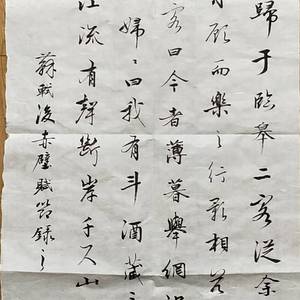 歸于臨皋二客從余
月顧而樂之行歌相答
客曰今者薄暮舉網得
婦〻曰我有斗酒藏之
江流有聲斷岸千尺山
蘇軾後赤壁賦節錄之